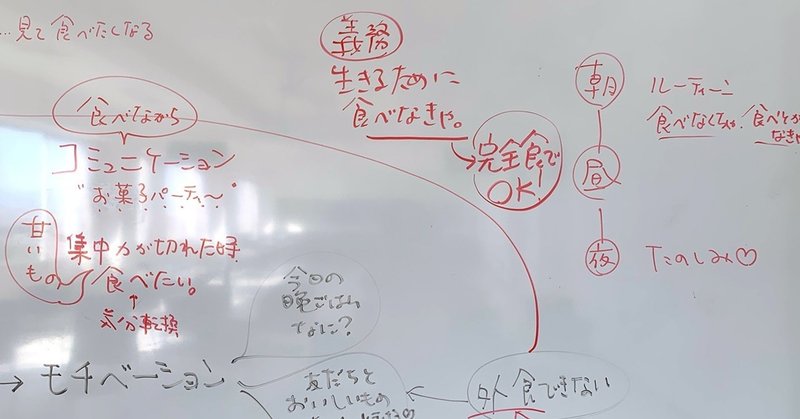 …見て食べたくなる
食べながら
コミュニケーション
"お菓子パーティ〜"
甘い
もの
集中力が切れた時
食べたい。
↑
気分転換
義務
生きるために
食べなきゃ。
完全食で
OK!
朝
ルーティーン
食べなくちゃ、食べとか
なきゃ
昼
夜
たのしみ♡
今日の
晩ごはん
なに?
→ モチベーション
友だちと
おいしいもの
外食できない